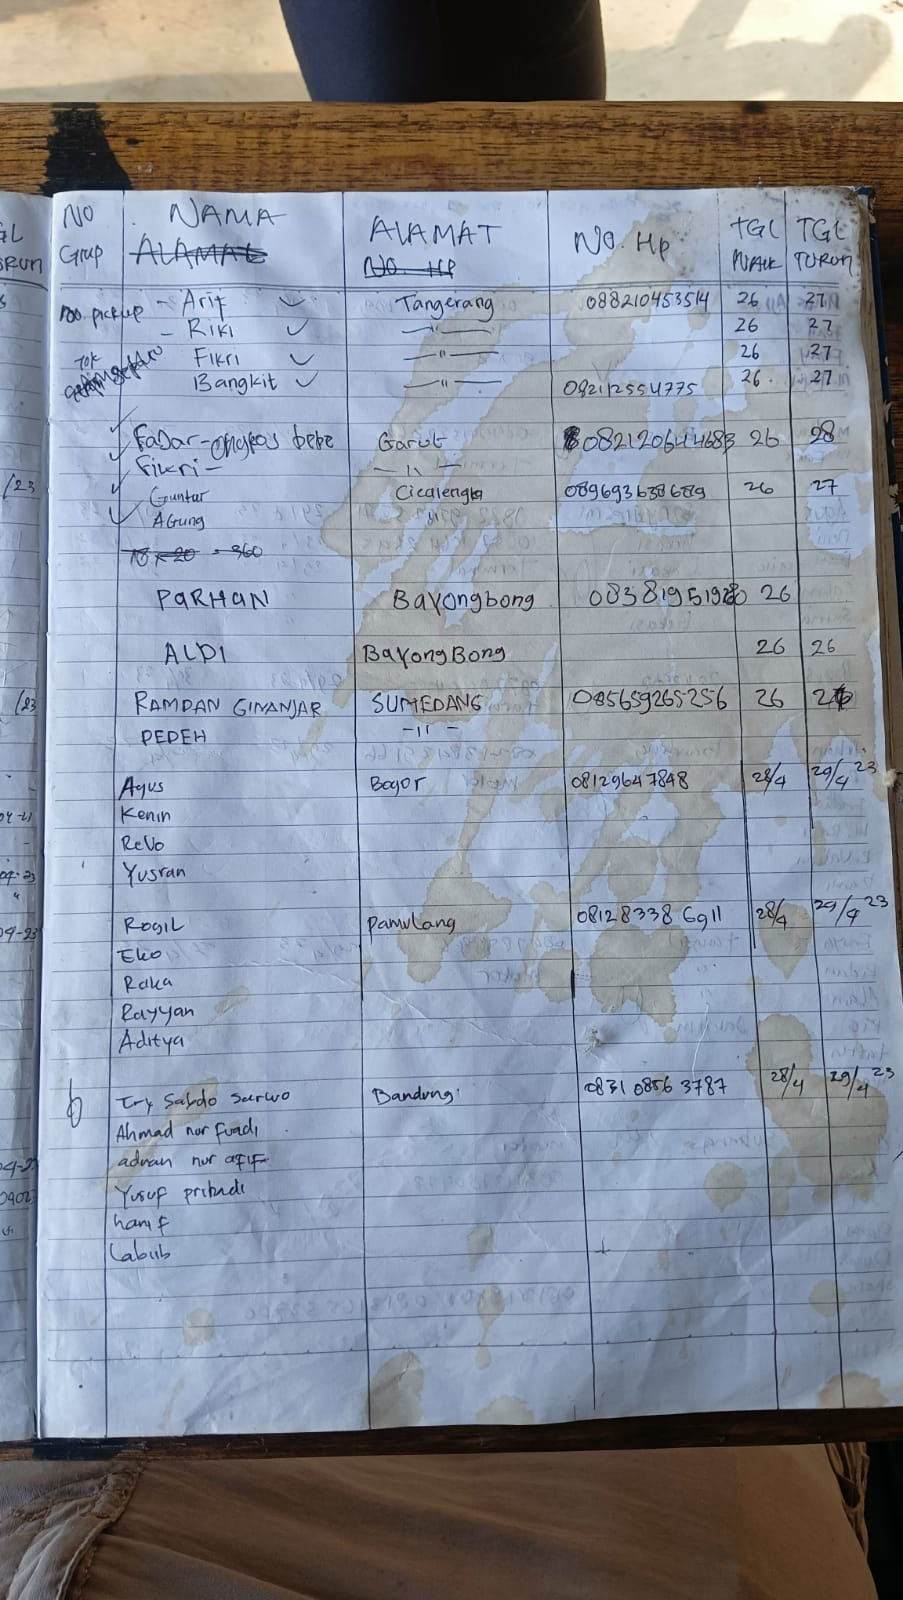 NO NAMA ALAMAT NO. Hp TGL NAIK TGL TURUN
Grup ALAMAT NO. HP
pickup - Arif Tangerang 088210453514 26 27
- Riki —"— 26 27
Fikri —"— 26 27
Bangkit —"— 082112554775 26 27
Fadar-ongkos bebe Garut 082120644683 26 28
Fikri - —"—
Guntur Cicalengka 089693638689 26 27
Agung
18 x 20 = 360
PARHAN Bayongbong 26
ALDI BayongBong 26 26
RAMDAN GINANJAR SUMEDANG 085659265256 26
DEDEH -"-
Agus Bogor 08129647848 28/4 29/4 23
Kenin
Revo
Yusran
Rogil Pamulang 08128338 6911 28/4 29/4 23
Eko
Raka
Rayyan
Aditya
Try Sabdo Sarwo Bandung 0831 0856 3787 28/4 29/4 23
Ahmad nur fuadi
adnan nur afif
Yusuf pribadi
hanif
Labib